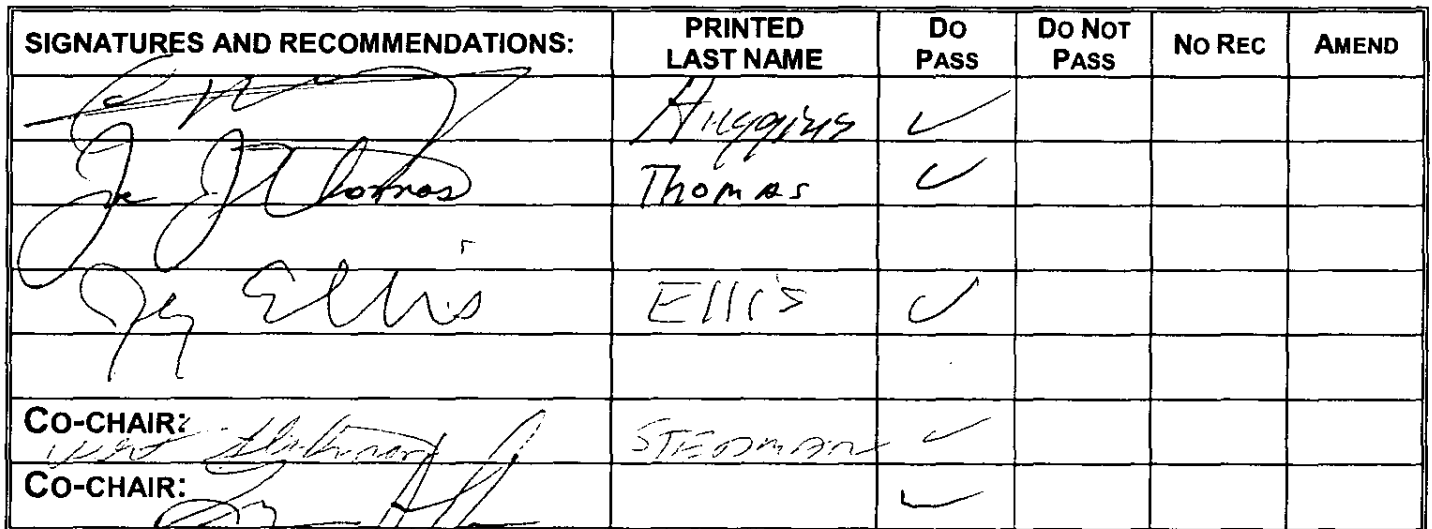 SIGNATURES AND RECOMMENDATIONS: PRINTED LAST NAME DO PASS DO NOT PASS NO REC AMEND
Huggins ✓
Joe J Thomas Thomas ✓
Ellis Ellis ✓
CO-CHAIR: Bert Stedman STEDMAN ✓
CO-CHAIR: ✓